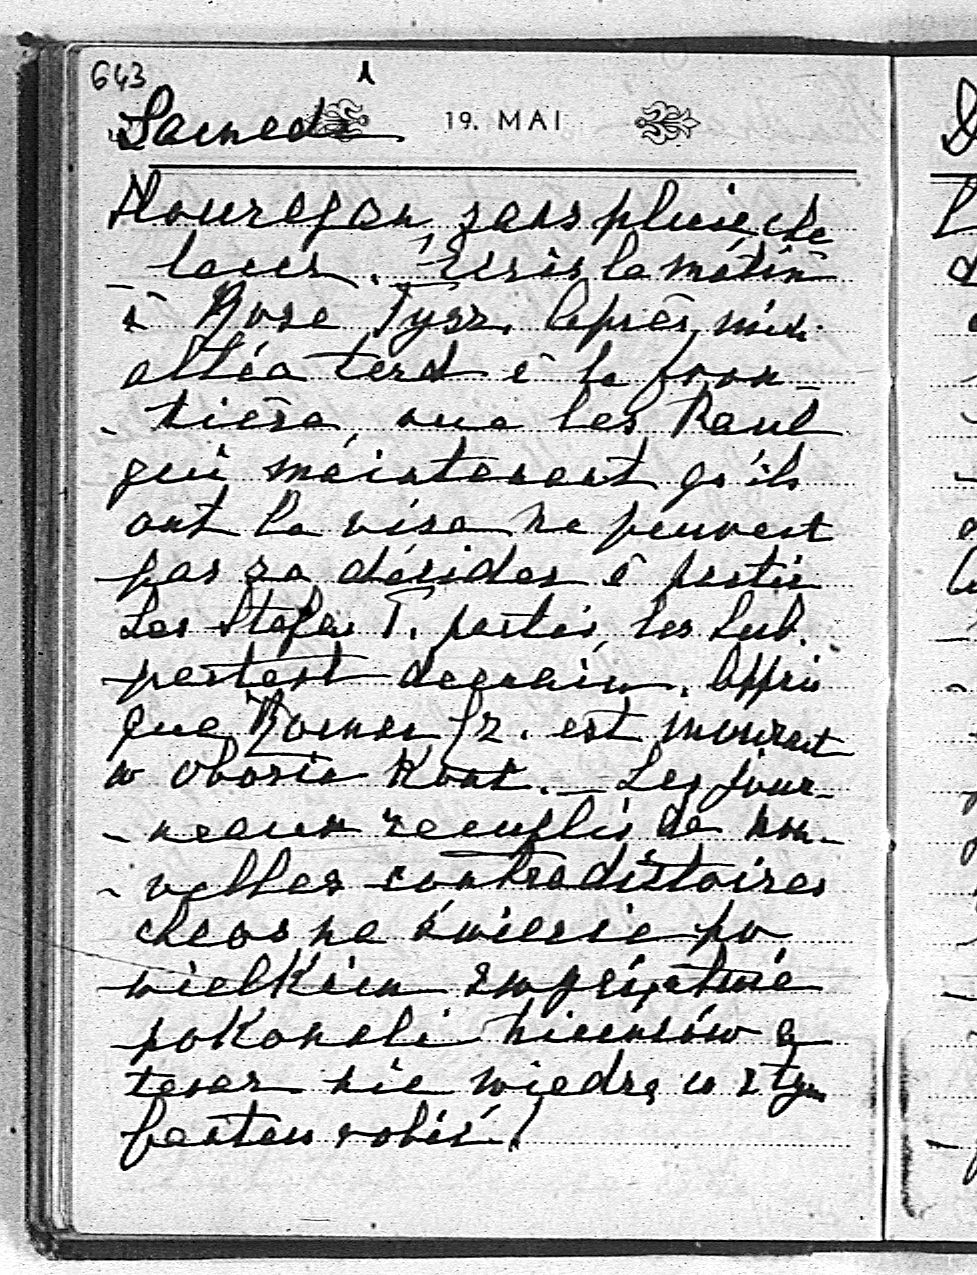 643
Samedi 19. MAI
Houregan sans pluie, de
lacer. Écris le matin
à Rose Tysz. Après mid.
alléa tard à la fron-
tière, vue les Raul
qui maintenant qu'ils
ont la visa ne peuvent
pas se décider à partir
Les Stefa T. partis, les Lub.
partent demain. Appris
que Romer Fr. est mourant
w obozie Konc. — Les jour-
neaux remplis de nou-
velles contradictoires
chaos na świecie po
wielkim zwycięstwie
pokonali niemców a
teraz nie wiedzą co z tym
fantem robić!